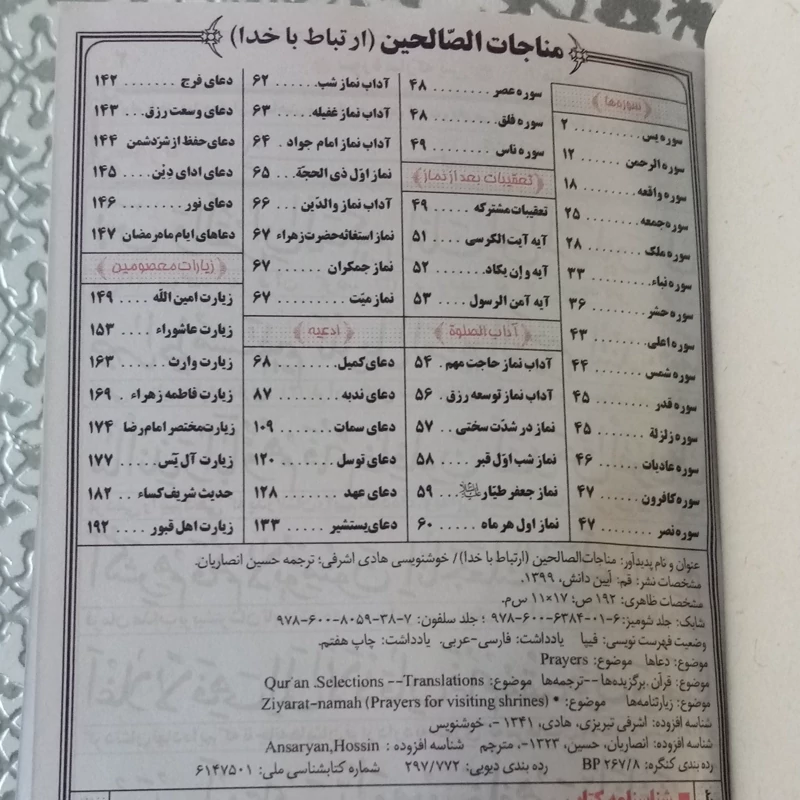 مناجات الصّالحین (ارتباط با خدا)
سوره‌ها
سوره یس ......... ۲
سوره الرحمن ..... ۱۲
سوره واقعه ...... ۱۸
سوره جمعه ...... ۲۵
سوره ملک ....... ۲۸
سوره نباء ........ ۳۳
سوره حشر ....... ۳۶
سوره اعلی ....... ۴۳
سوره شمس ...... ۴۴
سوره قدر ........ ۴۵
سوره زلزلة ....... ۴۵
سوره عادیات ..... ۴۶
سوره کافرون ..... ۴۷
سوره نصر ........ ۴۷
سوره عصر ........ ۴۸
سوره فلق ......... ۴۸
سوره ناس ........ ۴۹
تعقیبات بعد از نماز
تعقیبات مشترکه ..... ۴۹
آیه آیت الکرسی ..... ۵۱
آیه و إن یکاد ....... ۵۲
آیه آمن الرسول ..... ۵۳
آداب الصلوة
آداب نماز حاجت مهم . ۵۴
آداب نماز توسعه رزق . ۵۶
نماز در شدّت سختی .. ۵۷
نماز شب اوّل قبر .... ۵۸
نماز جعفر طیّار .... ۵۹
نماز اول هر ماه ..... ۶۰
آداب نماز شب ...... ۶۲
آداب نماز غفیله ..... ۶۳
آداب نماز امام جواد . ۶۴
نماز اوّل ذی الحجّة ... ۶۵
آداب نماز والدّین .... ۶۶
نماز استغاثه حضرت زهراء ۶۷
نماز جمکران ....... ۶۷
نماز میّت .......... ۶۷
ادعیه
دعای کمیل ........ ۶۸
دعای ندبه ......... ۸۷
دعای سمات ....... ۱۰۹
دعای توسل ....... ۱۲۰
دعای عهد ........ ۱۲۸
دعای یستشیر ..... ۱۳۳
دعای فرج ....... ۱۴۲
دعای وسعت رزق ... ۱۴۳
دعای حفظ از شرّ دشمن ۱۴۴
دعای ادای دِیْن .... ۱۴۵
دعای نور ....... ۱۴۶
دعاهای ایام ماه رمضان ۱۴۷
زیارات معصومین
زیارت امین الله .... ۱۴۹
زیارت عاشوراء .... ۱۵۳
زیارت وارث ...... ۱۶۳
زیارت فاطمه زهراء . ۱۶۹
زیارت مختصر امام رضا ۱۷۴
زیارت آل یٓس ..... ۱۷۷
حدیث شریف کساء .. ۱۸۲
زیارت اهل قبور .... ۱۹۲
عنوان و نام پدیدآور: مناجات‌الصالحین (ارتباط با خدا)/ خوشنویسی هادی اشرفی؛ ترجمه حسین انصاریان.
مشخصات نشر: قم: آیین دانش، ۱۳۹۹.
مشخصات ظاهری: ۱۹۲ ص؛ ۱۷×۱۱ س‌م.
شابک: جلد شومیز: ۶-۰۱-۶۳۸۴-۶۰۰-۹۷۸ ؛ جلد سلفون: ۷-۳۸-۸۰۵۹-۶۰۰-۹۷۸
وضعیت فهرست نویسی: فیپا یادداشت: فارسی-عربی. یادداشت: چاپ هفتم.
موضوع: دعاها موضوع: Prayers
موضوع: قرآن. برگزیده‌ها--ترجمه‌ها موضوع: Qur'an .Selections --Translations
موضوع: زیارتنامه‌ها موضوع: * Ziyarat-namah (Prayers for visiting shrines)
شناسه افزوده: اشرفی تبریزی، هادی، ۱۳۴۱ -، خوشنویس
شناسه افزوده: انصاریان، حسین، ۱۳۲۳-، مترجم شناسه افزوده : Ansaryan,Hossin
رده بندی کنگره: BP ۲۶۷/۸ رده بندی دیویی: ۲۹۷/۷۷۲ شماره کتابشناسی ملی: ۶۱۴۷۵۰۱
شناسنامه کتاب